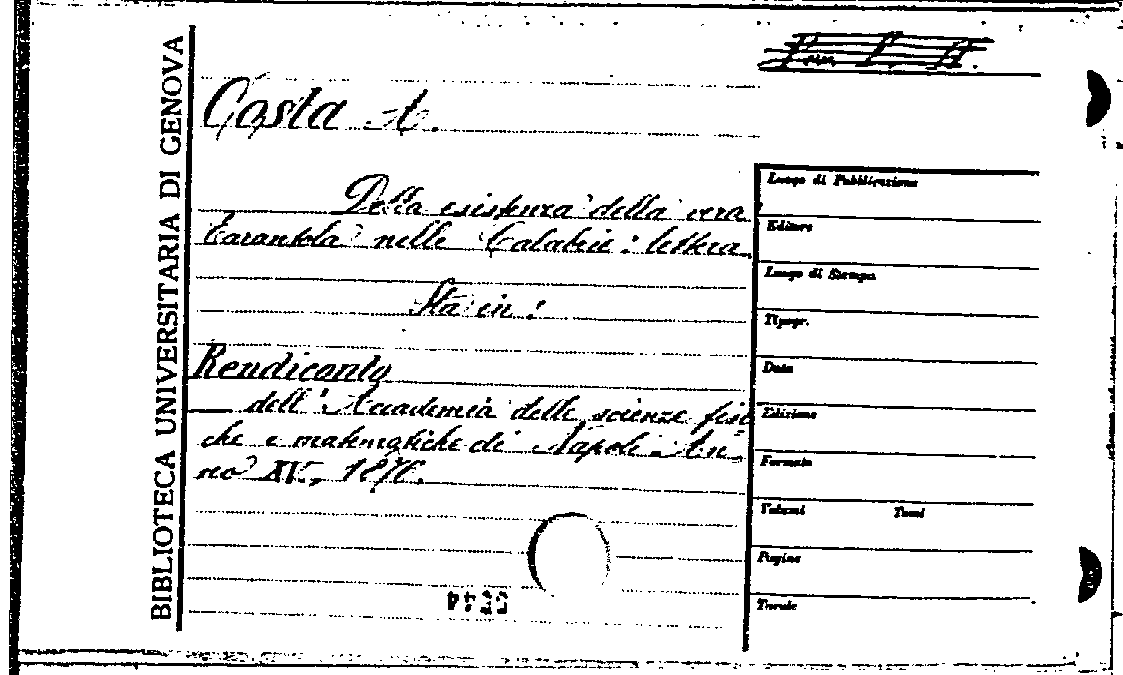 BIBLIOTECA UNIVERSITARIA DI GENOVA
Costa A.
Della esistenza della vera
Tarantola nelle Calabrie: lettera
Sta in:
Rendiconto
dell'Accademia delle scienze fisi
che e matematiche di Napoli. An-
no XV, 1876.
Luogo di Pubblicazione
Editore
Luogo di Stampa
Tipogr.
Data
Edizione
Formato
Volumi Tomi
Pagine
Tavole